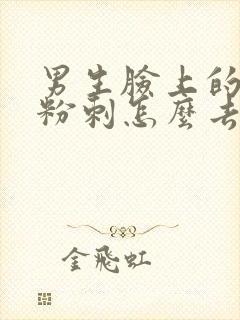 男生臉上的
粉刺怎麼去
金飛虹